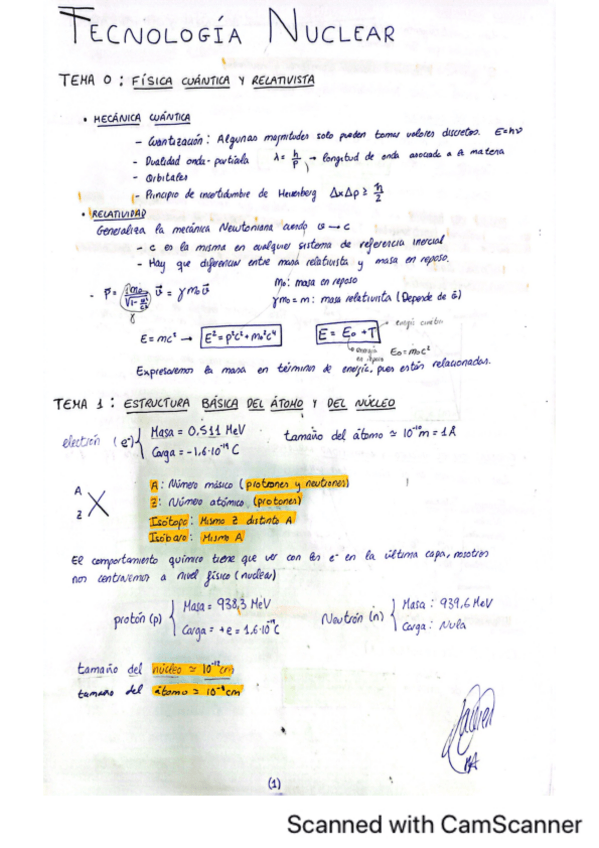 TECNOLOGÍA NUCLEAR
TEMA 0: FÍSICA CUÁNTICA Y RELATIVISTA
• MECÁNICA CUÁNTICA
- Cuantización: Algunas magnitudes solo pueden tomar valores discretos. E=hν
- Dualidad onda-partícula λ = h/p → longitud de onda asociada a la materia
- Orbitales
- Principio de incertidumbre de Heisenberg ΔxΔp ≥ ħ/2
• RELATIVIDAD
Generaliza la mecánica Newtoniana cuando v → c
- c es la misma en cualquier sistema de referencia inercial
- Hay que diferenciar entre masa relativista y masa en reposo.
m₀: masa en reposo
- p⃗ = m₀/√(1-v²/c²) v⃗ = γm₀v⃗
γ
γm₀ = m: masa relativista (Depende de v⃗)
E=mc² → E² = p²c² + m₀²c⁴
E = E₀ + T → energía cinética
energía en reposo E₀=m₀c²
Expresaremos la masa en término de energía, pues están relacionadas.
TEMA 1: ESTRUCTURA BÁSICA DEL ÁTOMO Y DEL NÚCLEO
electrón (e⁻) { Masa = 0,511 MeV
Carga = -1,6·10⁻¹⁹ C
tamaño del átomo ≃ 10⁻¹⁰m = 1Å
A
Z X
A: Número másico (protones y neutrones)
Z: Número atómico (protones)
Isótopo: Mismo Z distinto A
Isóbaro: Mismo A
El comportamiento químico tiene que ver con los e⁻ en la última capa, nosotros
nos centraremos a nivel físico (nuclear)
protón (p) { Masa = 938,3 MeV
Carga = +e = 1,6·10⁻¹⁹C
Neutrón (n) { Masa: 939,6 MeV
Carga: Nula
tamaño del núcleo ≃ 10⁻¹² cm
tamaño del átomo ≃ 10⁻⁸ cm
(1)
Scanned with CamScanner